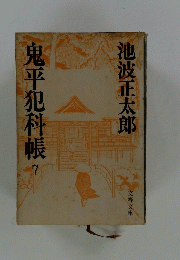 池波正太郎
鬼平犯科帳
7
文春文庫